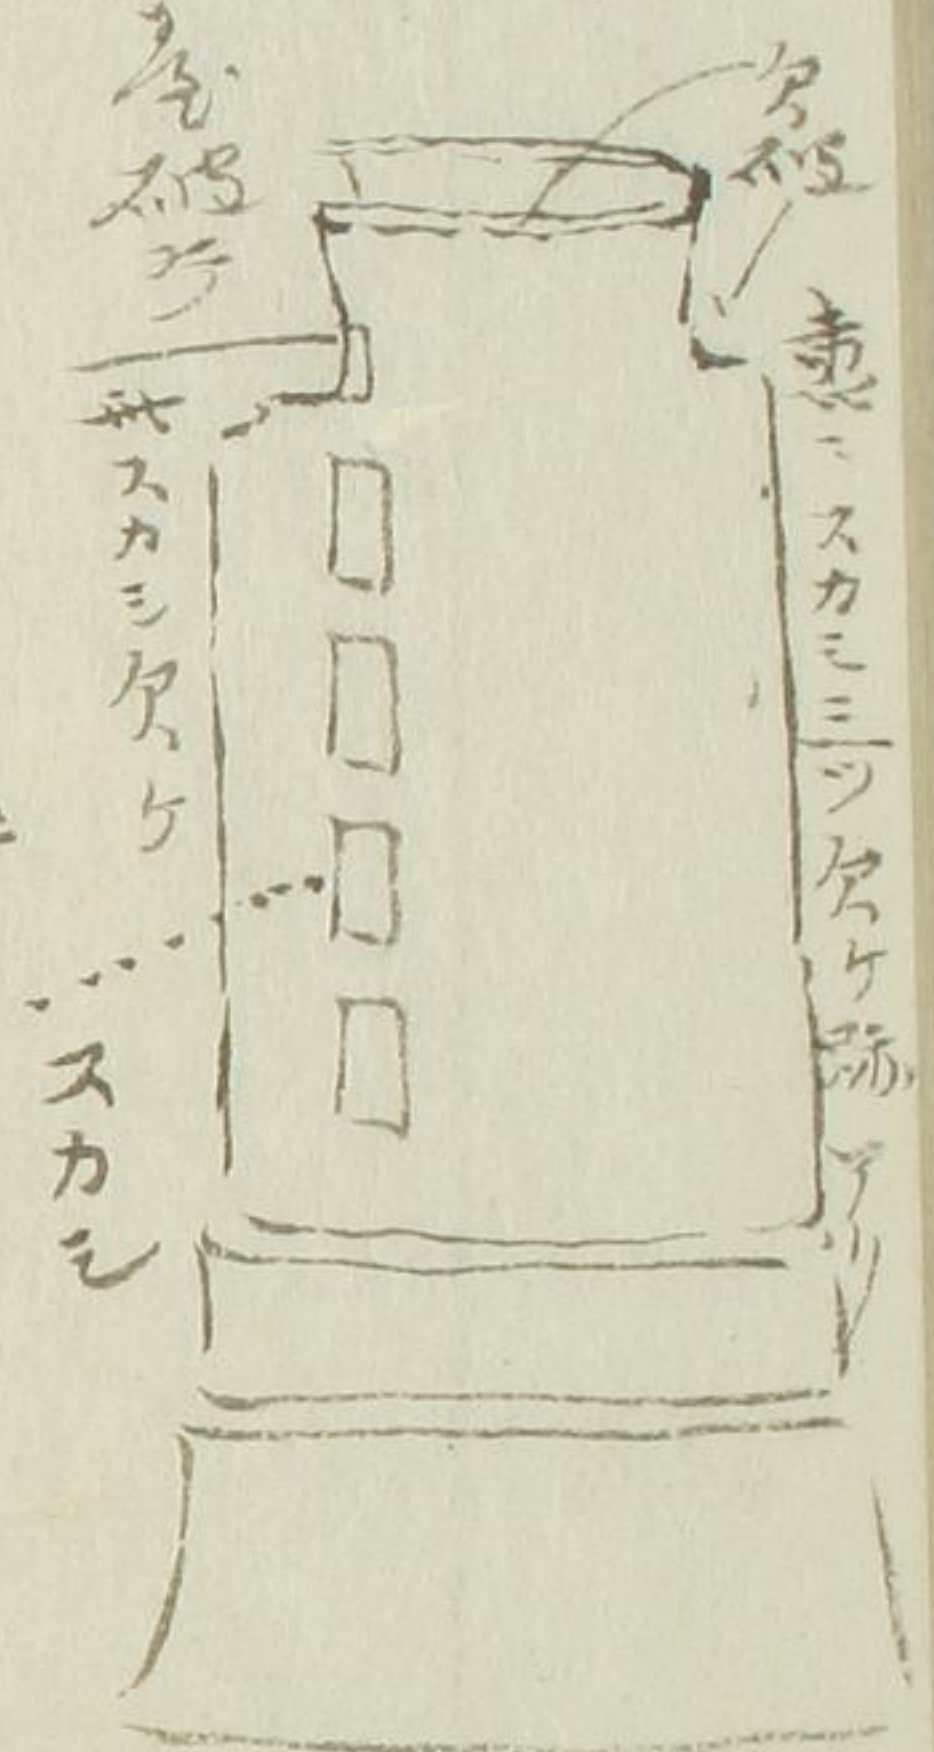 欠破
裏ニスカシ三ツ欠ケ跡アリ
破
此スカシ欠ケ
スカシ